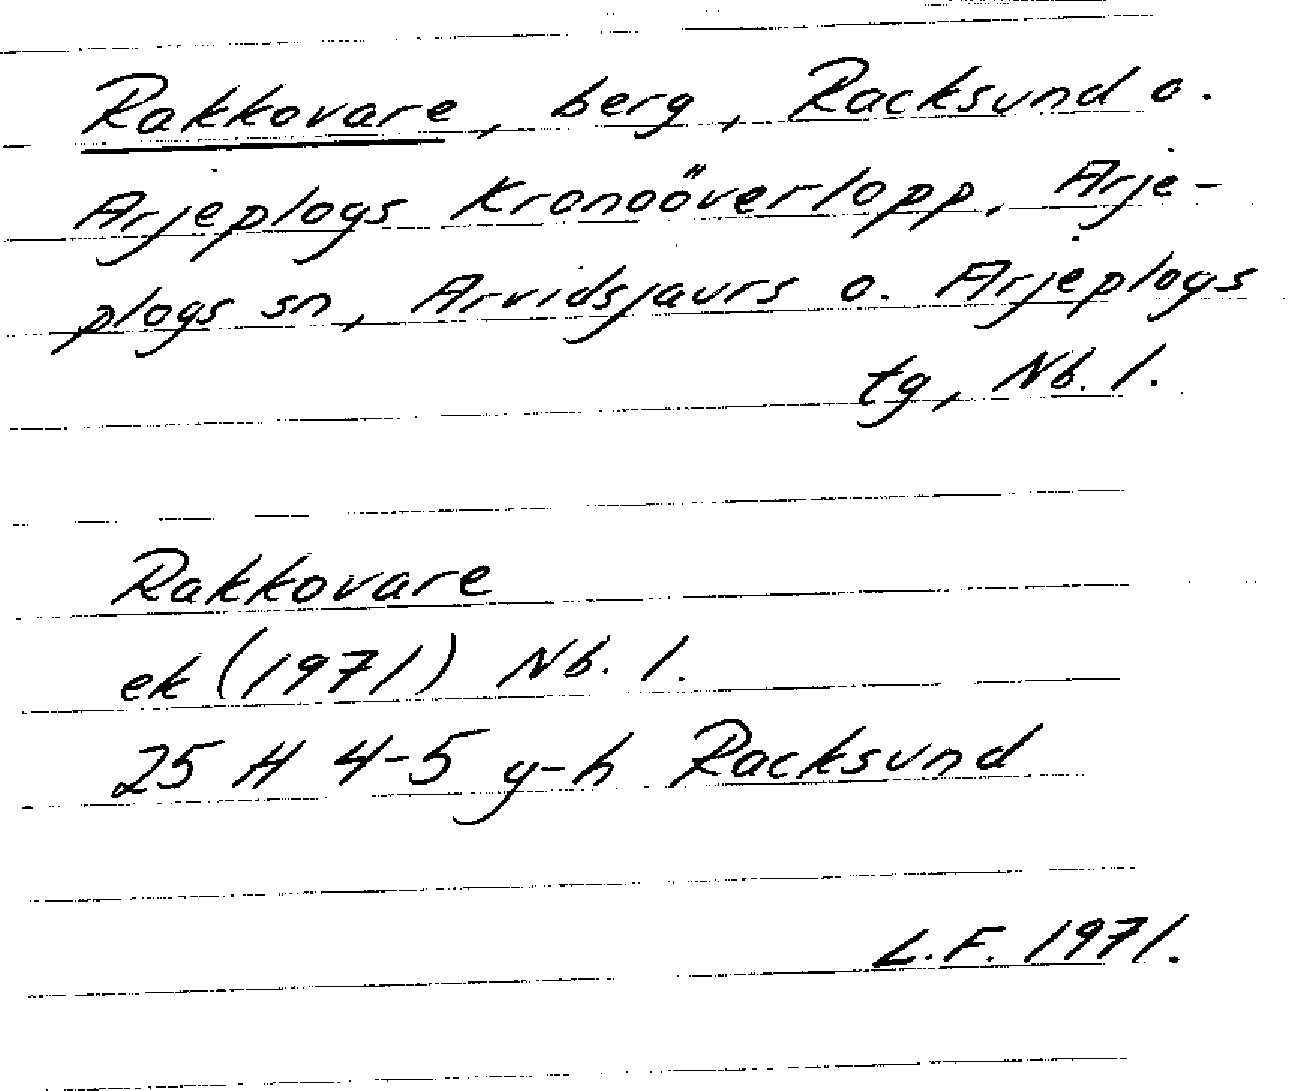 Rakkovare, berg, Racksund o.
Arjeplogs Kronoöverlopp, Arje-
plogs sn, Arvidsjaurs o. Arjeplogs
tg, Nb. l.
Rakkovare
ek (1971) Nb. l.
25 H 4-5 g-h Racksund
L.F. 1971.